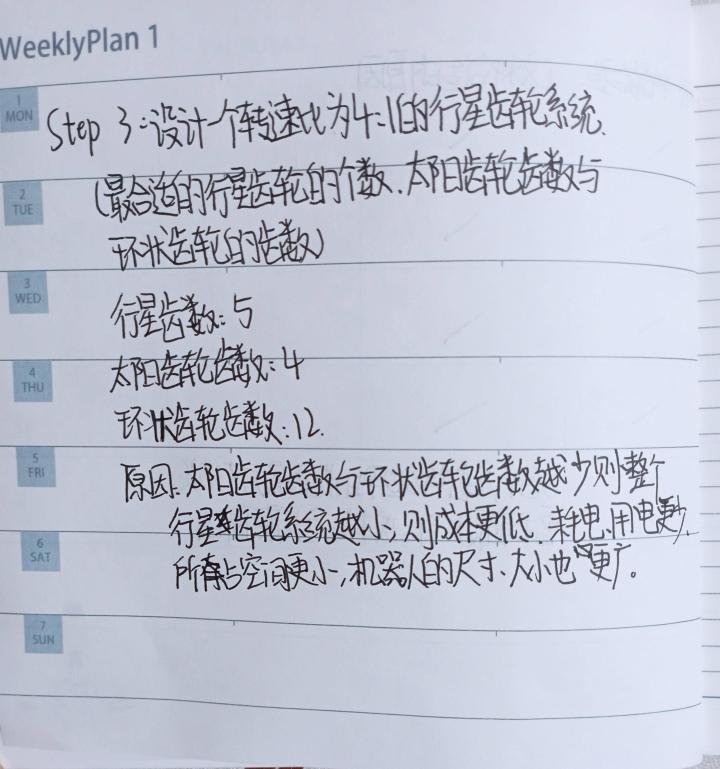 WeeklyPlan 1
1
MON
Step 3:设计一个转速比为4:1的行星齿轮系统.
2
TUE
(最合适的行星齿轮的个数、太阳齿轮齿数与
环状齿轮的齿数)
3
WED
行星齿数:5
4
THU
太阳齿轮齿数:4
环状齿轮齿数:12.
5
FRI
原因:太阳齿轮齿数与环状齿轮齿数越少则整个
行星齿轮系统越小,则成本更低、耗电、用电更少,
6
SAT
所占空间更小,机器人的尺寸、大小也更广。
7
SUN